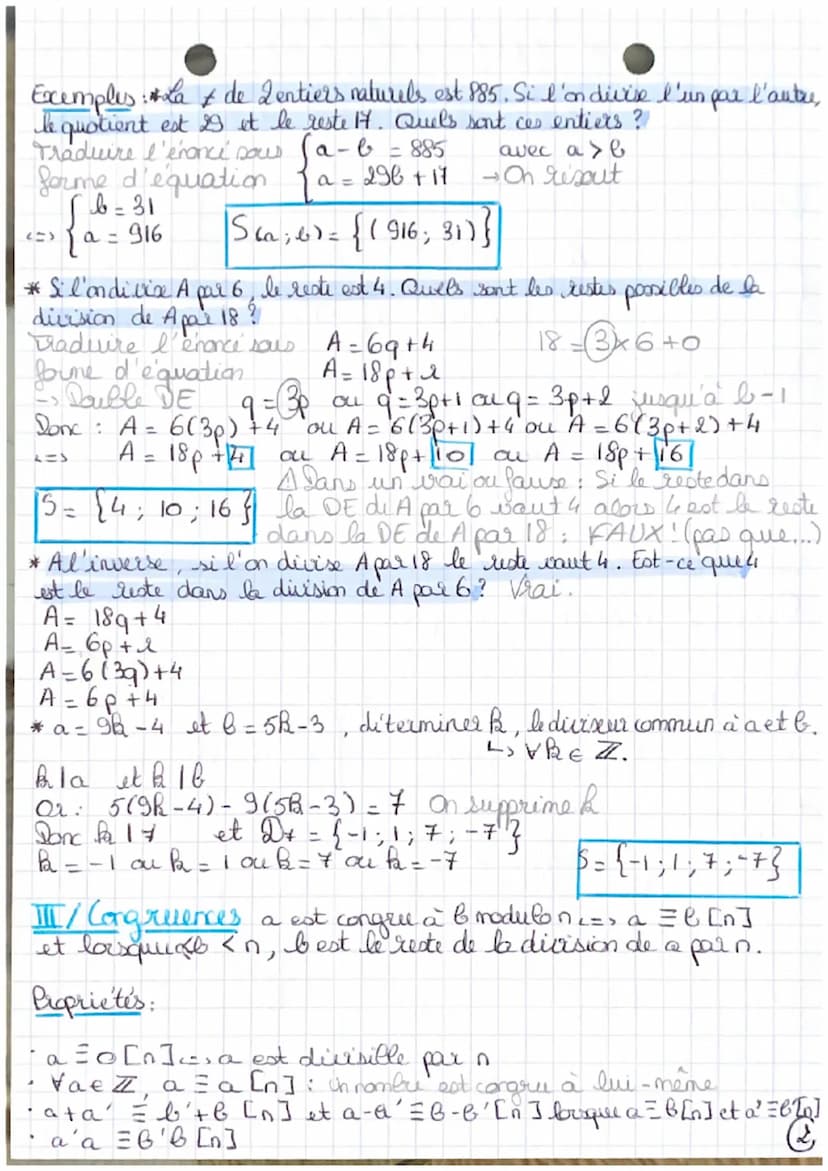 Exemples : * La ≠ de 2 entiers naturels est 885. Si l'on divise l'un par l'autre,
le quotient est 29 et le reste 17. Quels sont ces entiers ?
Traduire l'énoncé sous { a - b = 885 avec a > b
forme d'équation { a = 29b + 17 → On résout
<=> { b = 31
{ a = 916 S(a ; b) = {(916 ; 31)}
* Si l'on divise A par 6, le reste est 4. Quels sont les restes possibles de la
division de A par 18 ?
Traduire l'énoncé sous A = 6q + 4 18 = 3 × 6 + 0
forme d'équation A = 18p + r
-> Double DE q = 3p ou q = 3p+1 ou q = 3p+2 jusqu'à b-1
Donc : A = 6(3p) + 4 ou A = 6(3p+1) + 4 ou A = 6(3p+2) + 4
<=> A = 18p + 4 ou A = 18p + 10 ou A = 18p + 16
⚠ Dans un vrai ou fausse : Si le reste dans
S = {4 ; 10 ; 16} la DE de A par 6 vaut 4 alors 4 est le reste
dans la DE de A par 18 : FAUX ! (pas que...)
* A l'inverse, si l'on divise A par 18 le reste vaut 4. Est-ce que 4
est le reste dans la division de A par 6 ? Vrai.
A = 18q + 4
A = 6p + r
A = 6(3q) + 4
A = 6p + 4
* a = 9k - 4 et b = 5k - 3, déterminer k, le diviseur commun à a et b.
↳ ∀k ∈ ℤ.
k | a et k | b
Or : 5(9k - 4) - 9(5k - 3) = 7 On supprime k
Donc k | 7 et D7 = {-1 ; 1 ; 7 ; -7}
k = -1 ou k = 1 ou k = 7 ou k = -7 S = {-1 ; 1 ; 7 ; -7}
III / Congruences a est congru à b modulo n <=> a ≡ b [n]
et lorsque b < n, b est le reste de la division de a par n.
Propriétés :
· a ≡ 0 [n] <=> a est divisible par n
· ∀a ∈ ℤ, a ≡ a [n] : Un nombre est congru à lui-même
· a + a' ≡ b' + b [n] et a - a' ≡ b - b' [n] lorsque a ≡ b [n] et a' ≡ b' [n]
· a'a ≡ b'b [n]
2